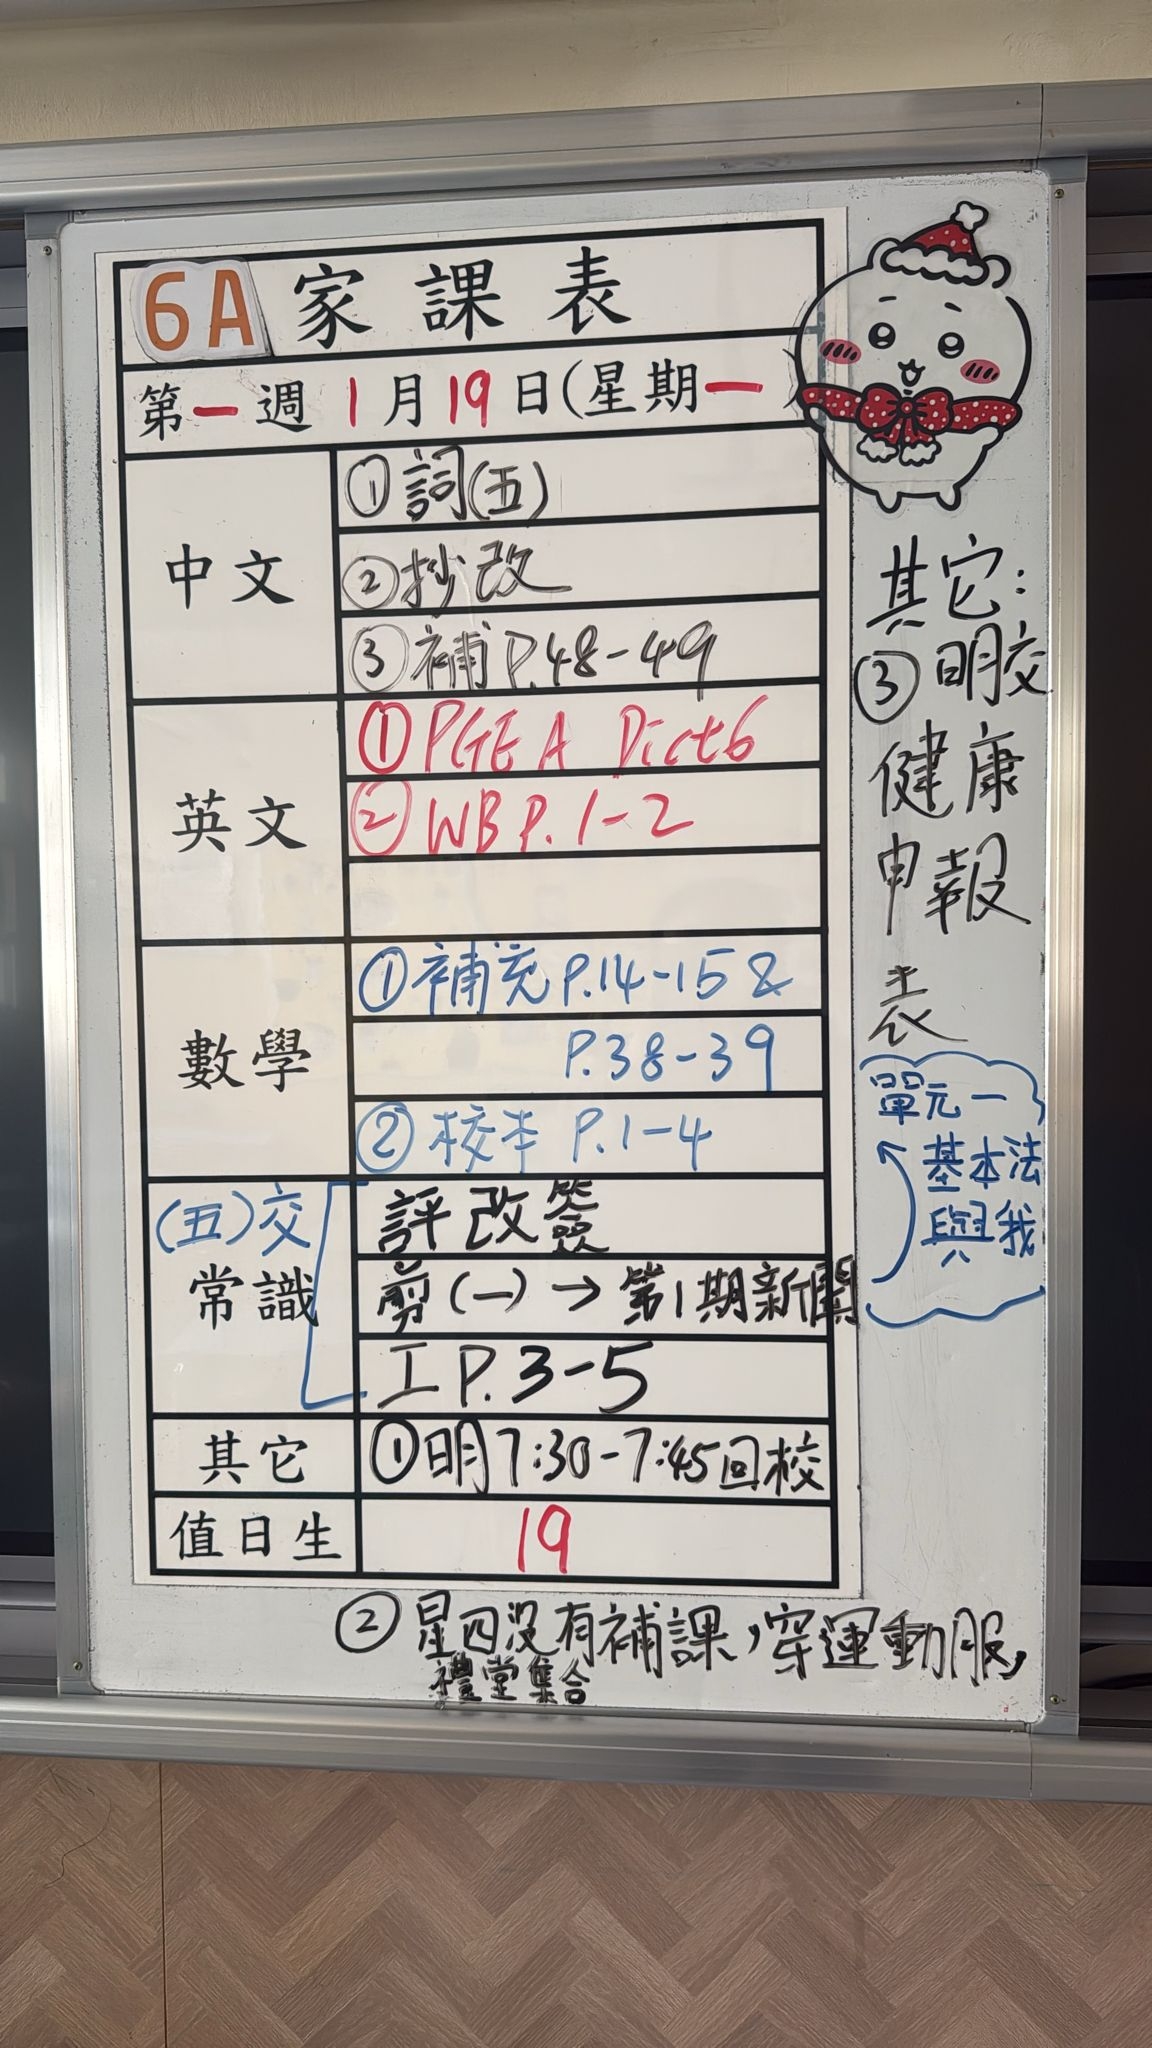 6A 家課表
第一週 1月19日(星期一)
中文
①詞(五)
②抄改
③補 P.48-49
英文
① PGE A Dict6
② WB P.1-2
數學
①補充 P.14-15 &
P.38-39
②校本 P.1-4
(五)交
常識
評改簽
剪(一)→第1期新聞
工 P.3-5
其它
①明7:30-7:45回校
值日生
19
②星四沒有補課,穿運動服,
禮堂集合
其它:
③明交
健康
申報
表
單元一
基本法
與我